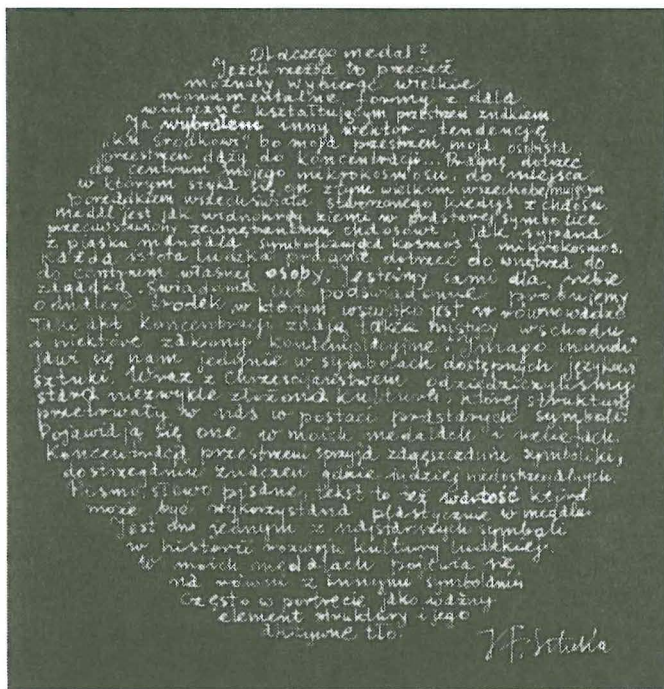 Dlaczego medal?
Jeżeli rzeźba to przecież
można by wybierać wielkie
monumentalne formy z dala
widoczne kształtującym przestrzeń znakiem
Ja wybrałem inny wektor - tendencję
ku środkowi, bo moja przestrzeń, moja osobista
przestrzeń dąży do koncentracji... Pragnę dotrzeć
do centrum swojego mikrokosmosu, do miejsca
w którym styka się on z tym wielkim wszechobejmującym
porządkiem wszechświata stworzonego kiedyś z chaosu.
Medal jest jak widnokrąg ziemi w prastarej symbolice
przeciwstawiony zewnętrznemu chaosowi, jak sypana
z piasku mandala symbolizująca kosmos i mikrokosmos.
Każda istota ludzka pragnie dotrzeć do wnętrza do
do centrum własnej osoby. Jesteśmy sami dla siebie
zagadką. Świadomie lub podświadomie próbujemy
odnaleźć środek w którym wszystko jest w równowadze
Taki akt koncentracji znają także mistycy wschodu
i niektóre zakony kontemplacyjne "Imago mundi"
jawi się nam jedynie w symbolach dostępnych językowi
sztuki. Wraz z Chrześcijaństwem odziedziczyliśmy
starą niezwykle złożoną kulturę, której struktury
przetrwały w nas w postaci prastarych symboli.
Pojawiają się one w moich medalach i reliefach.
Koncentracja przestrzeni sprzyja zagęszczaniu symboliki,
dostrzeganiu znaczeń gdzie indziej niedostrzegalnych
Pismo, słowo pisane, tekst to też wartość która
może być wykorzystana plastycznie w medalu
Jest ono jednym z najstarszych symboli
w historii rozwoju kultury ludzkiej.
W moich medalach pojawia się
na równi z innymi symbolami
Często w portrecie jako ważny
element struktury i jego
aktywne tło.